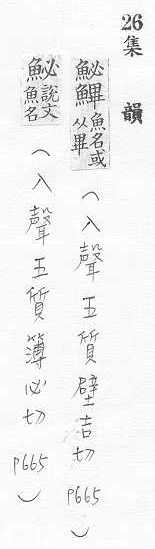 26集韻
䱛鷝魚名或从畢（入聲五質壁吉切 P665）
䱛說文魚名（入聲五質簿必切 P665）